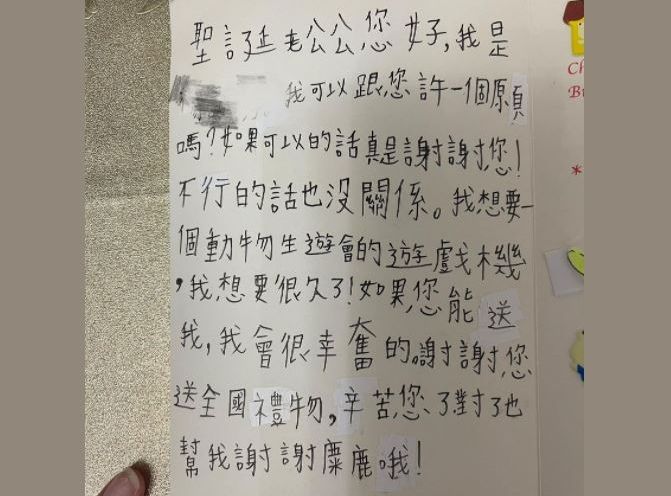 聖誕老公公您好,我是
我可以跟您許一個願
嗎?如果可以的話真是謝謝您!
不行的話也沒關係。我想要一
個動物生遊會的遊戲機
,我想要很久了!如果您能送
我,我會很幸奮的。謝謝您
送全國禮物,辛苦您了對了也
幫我謝謝麋鹿哦!
Ch
Br
*